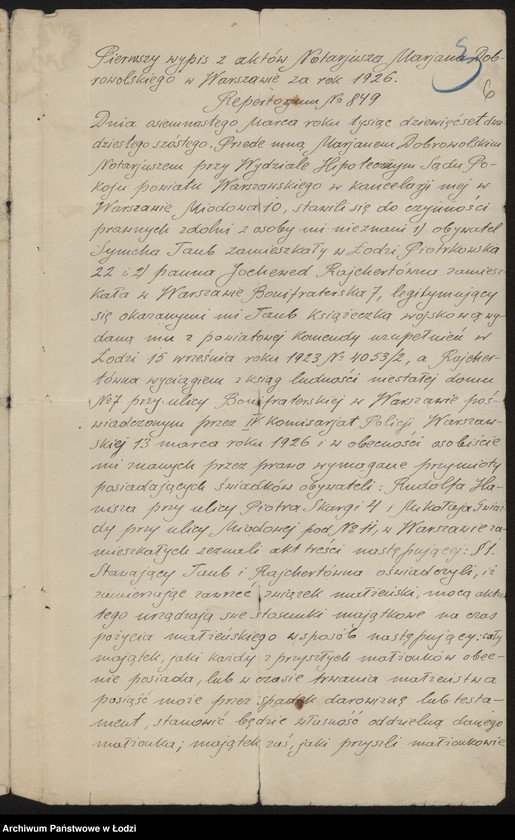 3
6
Pierwszy wypis z aktów Notarjusza Marjana Dob-
rowolskiego w Warszawie za rok 1926.
Repertorjum № 849
Dnia osiemnastego Marca roku tysiąc dziewięćset dwu
dziestego szóstego. Przede mną, Marjanem Dobrowolskim
Notarjuszem przy Wydziale Hipotecznym Sądu Po-
koju powiatu Warszawskiego w kancelarji mej w
Warszawie Miodowa 10, stawili się do czynności
prawnych zdolni z osoby mi nieznani 1) obywatel
Symcha Taub zamieszkały w Łodzi Piotrkowska
22 i 2) panna Jochewed Rajchertówna zamiesz-
kała w Warszawie Bonifraterska 7, legitymujący
się okazanymi mi Taub książeczką wojskową wy-
daną mu z powiatowej komendy uzupełnień w
Łodzi 15 września roku 1923 № 4053/2, a Rajcher-
tówna wyciągiem z ksiąg ludności niestałej domu
№ 7 przy ulicy Bonifraterskiej w Warszawie poś-
wiadczonym przez IV Komisarjat Policji Warszaw-
skiej 13 marca roku 1926 i w obecności osobiście
mi znanych przez prawo wymagane przymioty
posiadających świadków obywateli: Rudolfa Ha-
przy ulicy Piotra Skargi 4 i Mikołaja Gwiaz
dy przy ulicy Miodowej pod № 11, w Warszawie za-
mieszkałych zeznali akt treści następującej: § 1.
Stawający Taub i Rajchertówna oświadczyli, iż
zamierzając zawrzeć związek małżeński, mocą aktu
tego urządzają swe stosunki majątkowe na czas
pożycia małżeńskiego w sposób następujący: cały
majątek, jaki każdy z przyszłych małżonków obec-
nie posiada, lub w czasie trwania małżeństwa
posiąść może przez spadek darowiznę lub testa-
ment, stanowić będzie własność oddzielną danego
małżonka; majątek zaś, jaki przyszli małżonkowie
Archiwum Państwowe w Łodzi